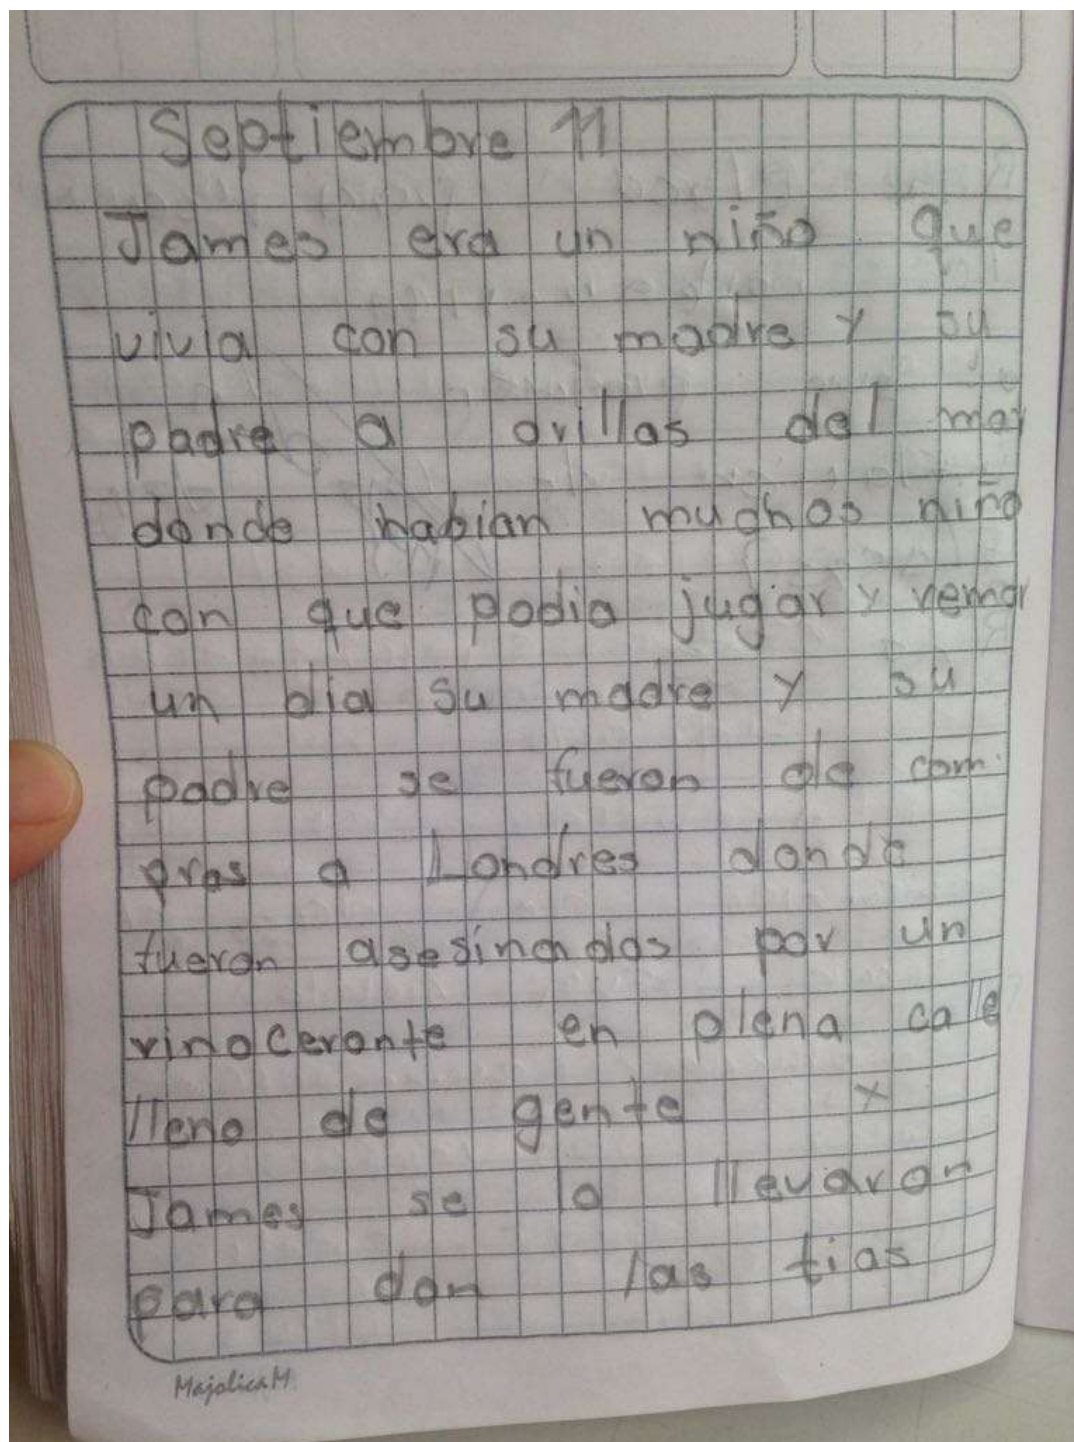 Septiembre 11
James era un niño que
vivia con su madre y su
padre a orillas del mar
donde habian muchos niño
con que podia jugar y remar
un dia su madre y su
padre se fueron de com
pras a Londres donde
fueron asesinados por un
rinoceronte en plena calle
lleno de gente x
James se lo llevaron
para don las tias
MajolicaM